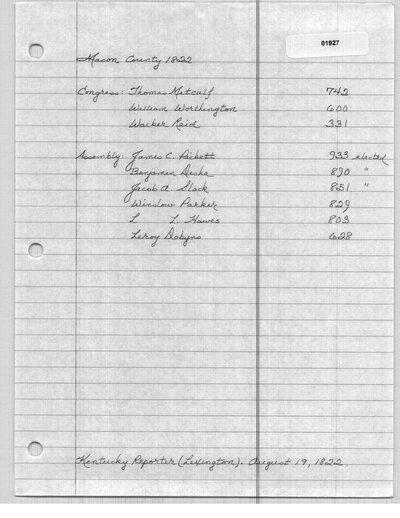 01927
Mason County 1822
Congress: Thomas Metcalf 742
William Worthington 600
Walker Reid 331
Assembly: James C. Pickett 933 elected
Benjamin Desha 890 "
Jacob A. Slack 851 "
Winslow Parker 829
L L. Hawes 803
Leroy Dobyns 628
Kentucky Reporter (Lexington). August 19, 1822.